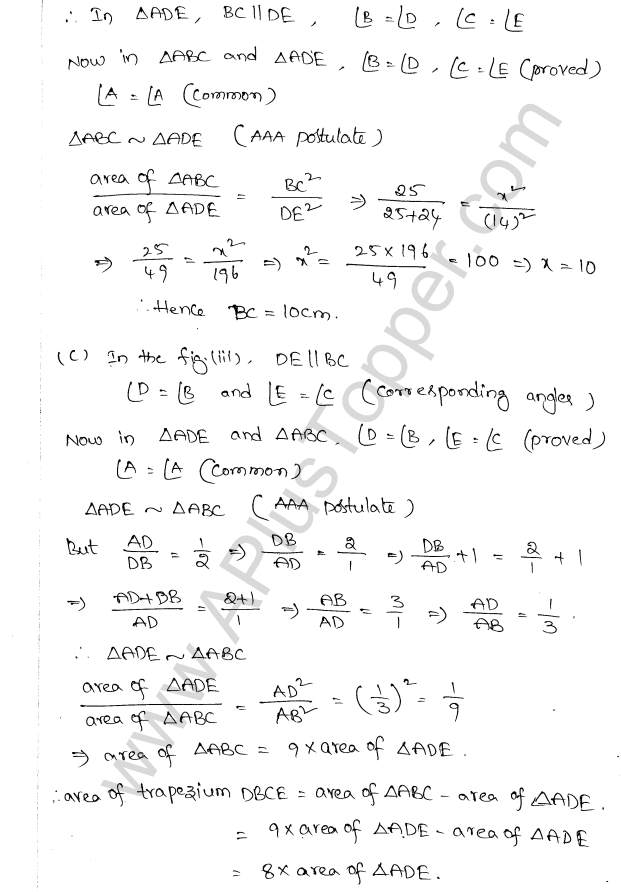 ∴ In ΔADE, BC || DE, ∠B = ∠D, ∠C = ∠E
Now in ΔABC and ΔADE, ∠B = ∠D, ∠C = ∠E (proved)
∠A = ∠A (Common)
ΔABC ~ ΔADE (AAA postulate)
area of ΔABC / area of ΔADE = BC² / DE² ⇒ 25 / 25+24 = x² / (14)²
⇒ 25/49 = x²/196 ⇒ x² = 25×196 / 49 = 100 ⇒ x = 10
∴ Hence BC = 10cm.
(C) In the fig.(iii), DE || BC
∠D = ∠B and ∠E = ∠C (Corresponding angles)
Now in ΔADE and ΔABC, ∠D = ∠B, ∠E = ∠C (proved)
∠A = ∠A (Common)
ΔADE ~ ΔABC (AAA postulate)
But AD/DB = 1/2 ⇒ DB/AD = 2/1 ⇒ DB/AD + 1 = 2/1 + 1
⇒ AD+DB / AD = 2+1 / 1 ⇒ AB/AD = 3/1 ⇒ AD/AB = 1/3.
∴ ΔADE ~ ΔABC
area of ΔADE / area of ΔABC = AD² / AB² = (1/3)² = 1/9
⇒ area of ΔABC = 9 × area of ΔADE.
∴ area of trapezium DBCE = area of ΔABC - area of ΔADE.
= 9 × area of ΔADE - area of ΔADE
= 8 × area of ΔADE.
www.APlusTopper.com